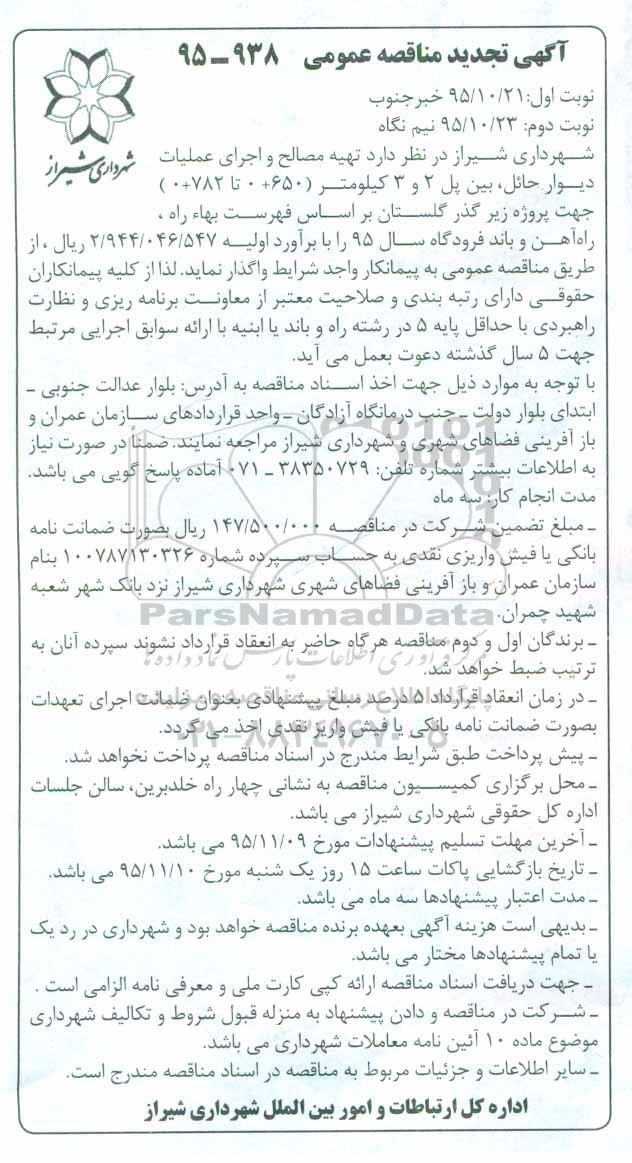 آگهی تجدید مناقصه عمومی ۹۳۸ ـ ۹۵
شهرداری شیراز
نوبت اول: ۹۵/۱۰/۲۱ خبرجنوب
نوبت دوم: ۹۵/۱۰/۲۳ نیم نگاه
شهرداری شیراز در نظر دارد تهیه مصالح و اجرای عملیات
دیوار حائل، بین پل ۲ و ۳ کیلومتر (۶۵۰+۰ تا ۷۸۲+۰)
جهت پروژه زیر گذر گلستان بر اساس فهرست بهاء راه ،
راه‌آهن و باند فرودگاه سال ۹۵ را با برآورد اولیه ۲/۹۴۴/۰۴۶/۵۴۷ ریال ، از
طریق مناقصه عمومی به پیمانکار واجد شرایط واگذار نماید. لذا از کلیه پیمانکاران
حقوقی دارای رتبه بندی و صلاحیت معتبر از معاونت برنامه ریزی و نظارت
راهبردی با حداقل پایه ۵ در رشته راه و باند یا ابنیه با ارائه سوابق اجرایی مرتبط
جهت ۵ سال گذشته دعوت بعمل می آید.
با توجه به موارد ذیل جهت اخذ اسناد مناقصه به آدرس: بلوار عدالت جنوبی ـ
ابتدای بلوار دولت ـ جنب درمانگاه آزادگان ـ واحد قراردادهای سازمان عمران و
باز آفرینی فضاهای شهری و شهرداری شیراز مراجعه نمایند. ضمناً در صورت نیاز
به اطلاعات بیشتر شماره تلفن: ۳۸۳۵۰۷۲۹ ـ ۰۷۱ آماده پاسخ گویی می باشد.
مدت انجام کار: سه ماه
ـ مبلغ تضمین شرکت در مناقصه ۱۴۷/۵۰۰/۰۰۰ ریال بصورت ضمانت نامه
بانکی یا فیش واریزی نقدی به حساب سپرده شماره ۱۰۰۷۸۷۱۳۰۳۲۶ بنام
سازمان عمران و باز آفرینی فضاهای شهری شهرداری شیراز نزد بانک شهر شعبه
شهید چمران.
ParsNamadData
ـ برندگان اول و دوم مناقصه هرگاه حاضر به انعقاد قرارداد نشوند سپرده آنان به
ترتیب ضبط خواهد شد.
ـ در زمان انعقاد قرارداد ۵ درصد مبلغ پیشنهادی بعنوان ضمانت اجرای تعهدات
بصورت ضمانت نامه بانکی یا فیش واریز نقدی اخذ می گردد.
ـ پیش پرداخت طبق شرایط مندرج در اسناد مناقصه پرداخت نخواهد شد.
ـ محل برگزاری کمیسیون مناقصه به نشانی چهار راه خلدبرین، سالن جلسات
اداره کل حقوقی شهرداری شیراز می باشد.
ـ آخرین مهلت تسلیم پیشنهادات مورخ ۹۵/۱۱/۰۹ می باشد.
ـ تاریخ بازگشایی پاکات ساعت ۱۵ روز یک شنبه مورخ ۹۵/۱۱/۱۰ می باشد.
ـ مدت اعتبار پیشنهادها سه ماه می باشد.
ـ بدیهی است هزینه آگهی بعهده برنده مناقصه خواهد بود و شهرداری در رد یک
یا تمام پیشنهادها مختار می باشد.
ـ جهت دریافت اسناد مناقصه ارائه کپی کارت ملی و معرفی نامه الزامی است .
ـ شرکت در مناقصه و دادن پیشنهاد به منزله قبول شروط و تکالیف شهرداری
موضوع ماده ۱۰ آئین نامه معاملات شهرداری می باشد.
ـ سایر اطلاعات و جزئیات مربوط به مناقصه در اسناد مناقصه مندرج است.
اداره کل ارتباطات و امور بین الملل شهرداری شیراز